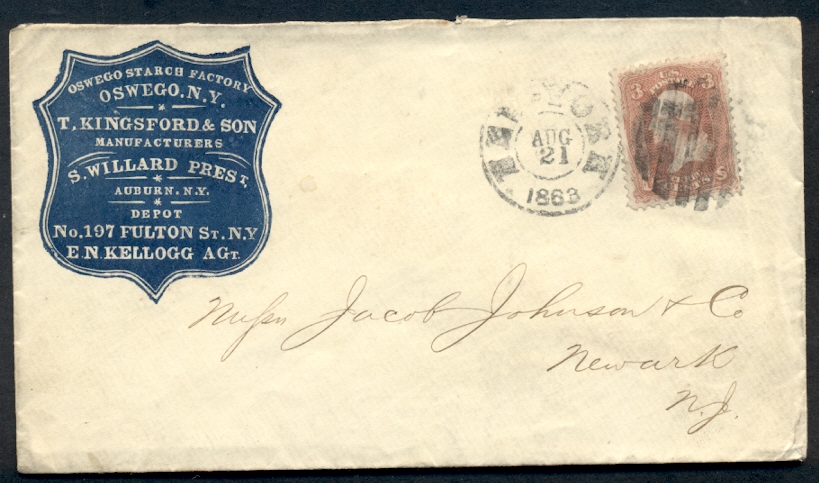 OSWEGO STARCH FACTORY
OSWEGO, N.Y.
T. KINGSFORD & SON
MANUFACTURERS
S. WILLARD PREST,
AUBURN. N.Y.
DEPOT
No. 197 FULTON ST. N.Y
E.N. KELLOGG AGT.
NEW-YORK
AUG
21
1863
U.S.
POSTAGE
3 3
CENTS
Messrs Jacob Johnson & Co
Newark
N.J.